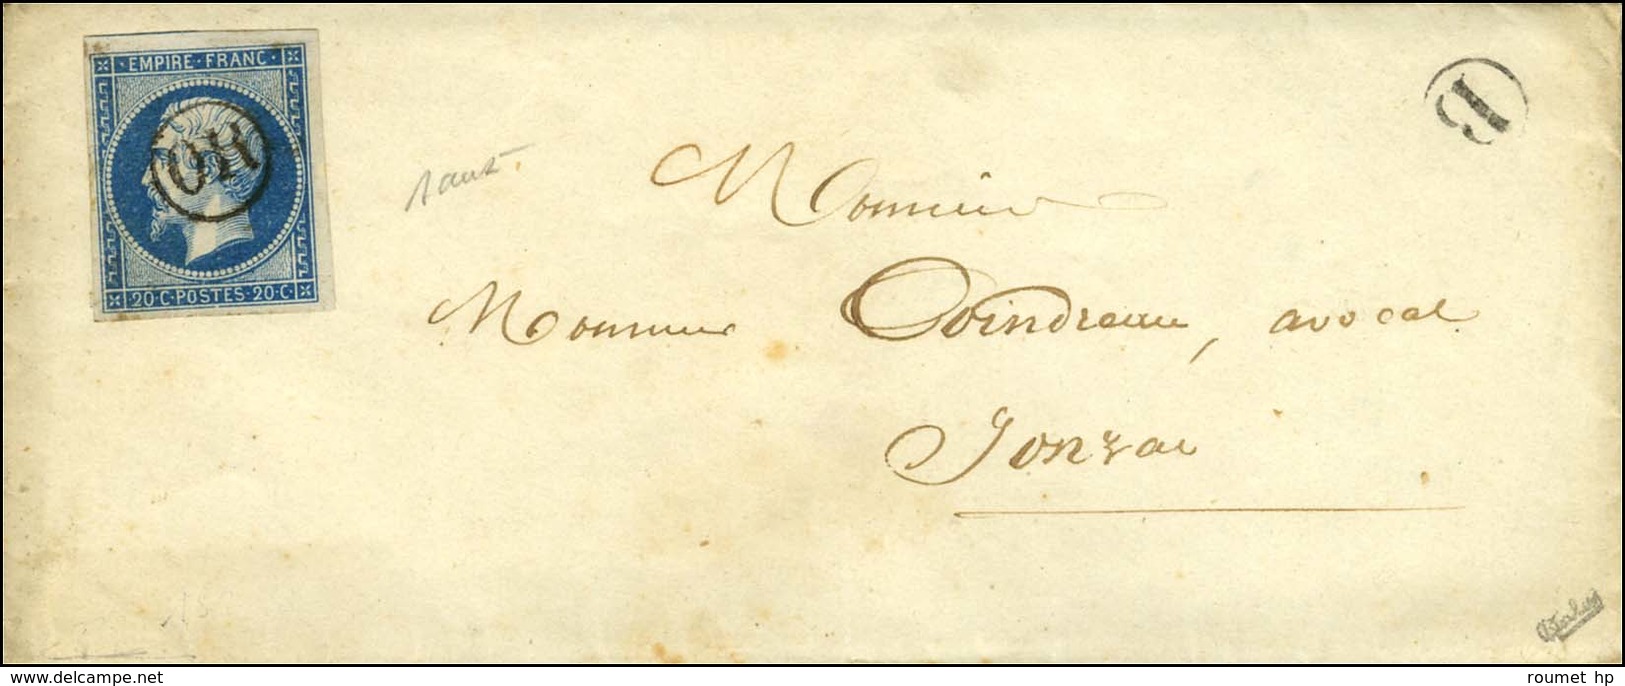 EMPIRE · FRANC ·
OR
20 · C · POSTES · 20 · C ·
B
Monsieur
Monsieur Poindreau, avocat
Jonzac
roumet hp